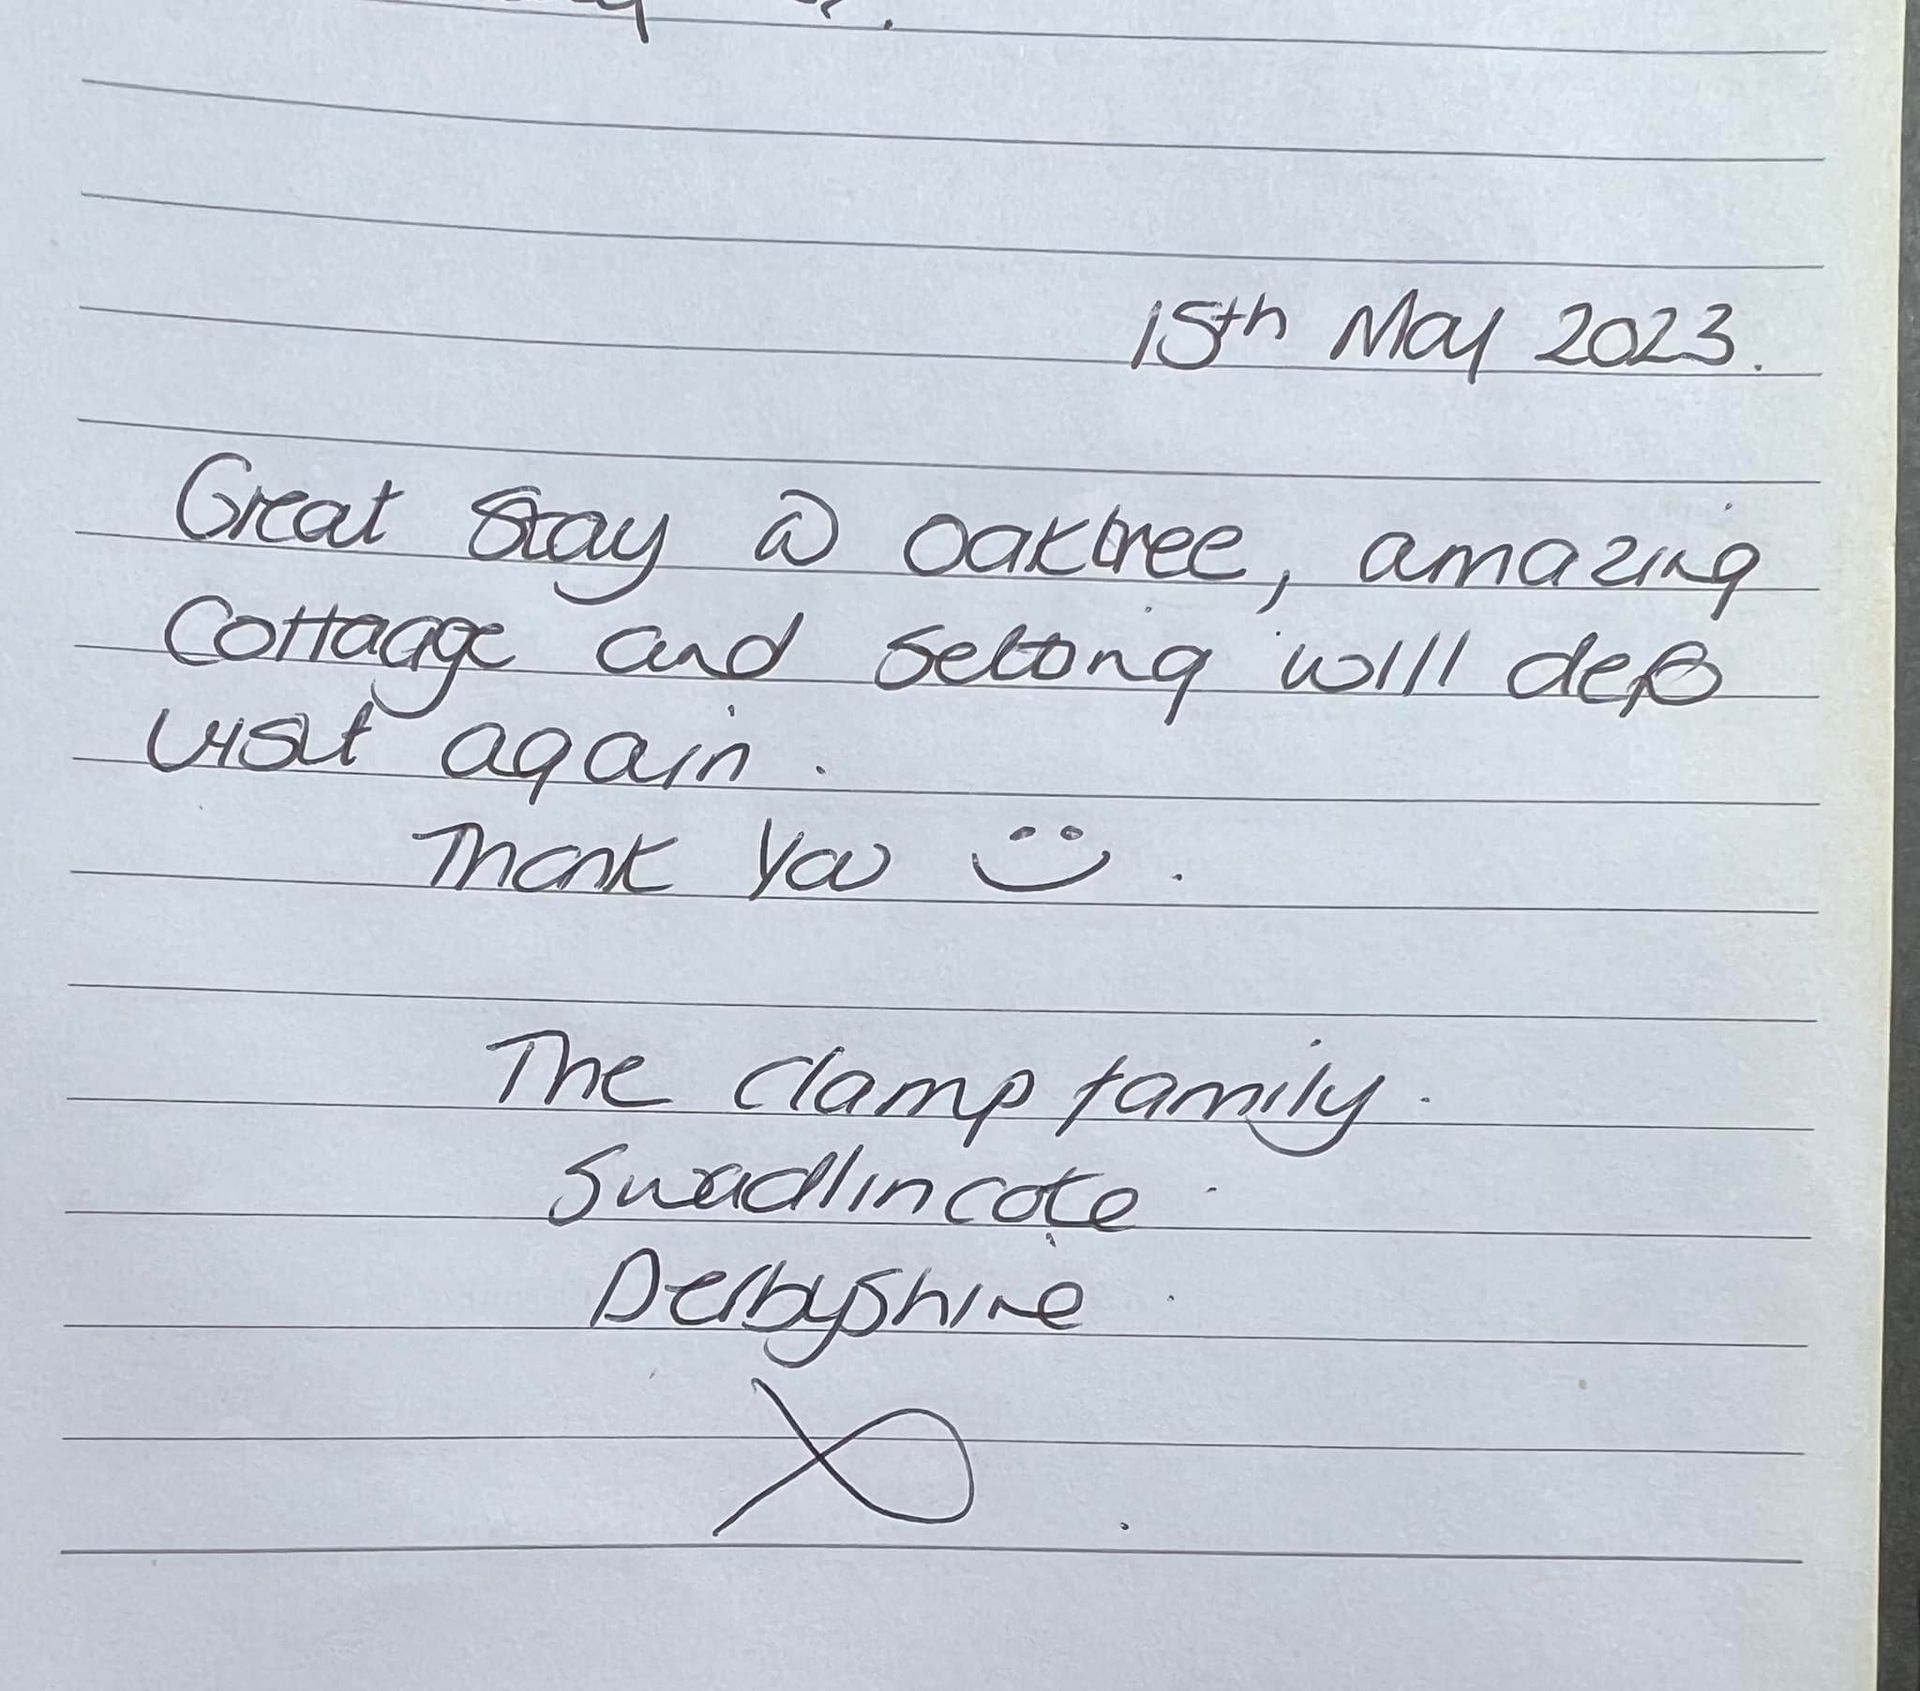 15th May 2023.
Great Stay @ Oaktree, amazing
Cottage and setting will defo
visit again.
Thank you :) .
The Clamp family.
Swadlincote.
Derbyshire.
X